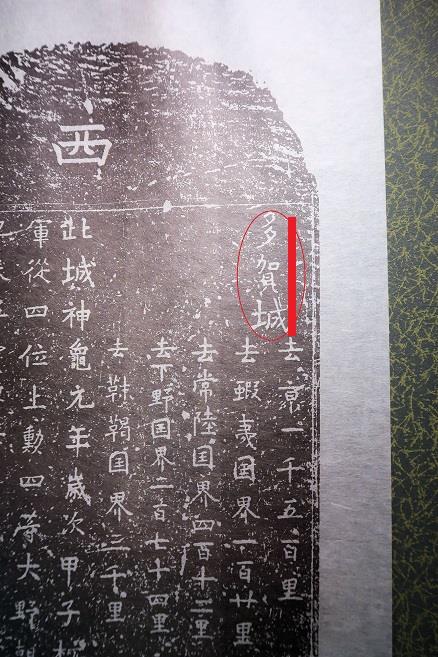 西
多賀城
去京一千五百里
去蝦夷国界一百廿里
去常陸国界四百十二里
去下野国界二百七十四里
去靺鞨国界三千里
此城神龜元年歳次甲子按
軍從四位上勳四等大野朝